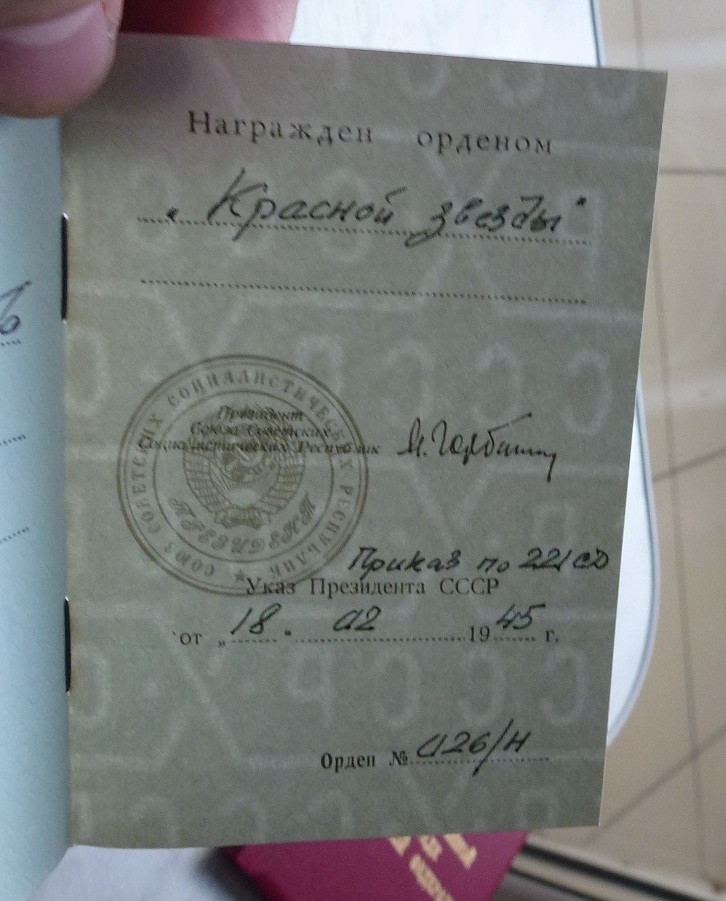 Награжден орденом
„ Красной звезды "
СОЮЗ СОВЕТСКИХ СОЦИАЛИСТИЧЕСКИХ РЕСПУБЛИК
Президент
Союза Советских
Социалистических Республик
М. Горбачев
ПРЕЗИДЕНТ
Приказ по 221 СД
Указ Президента СССР
от „ 18 " 02 1945 г.
Орден № 026/Н